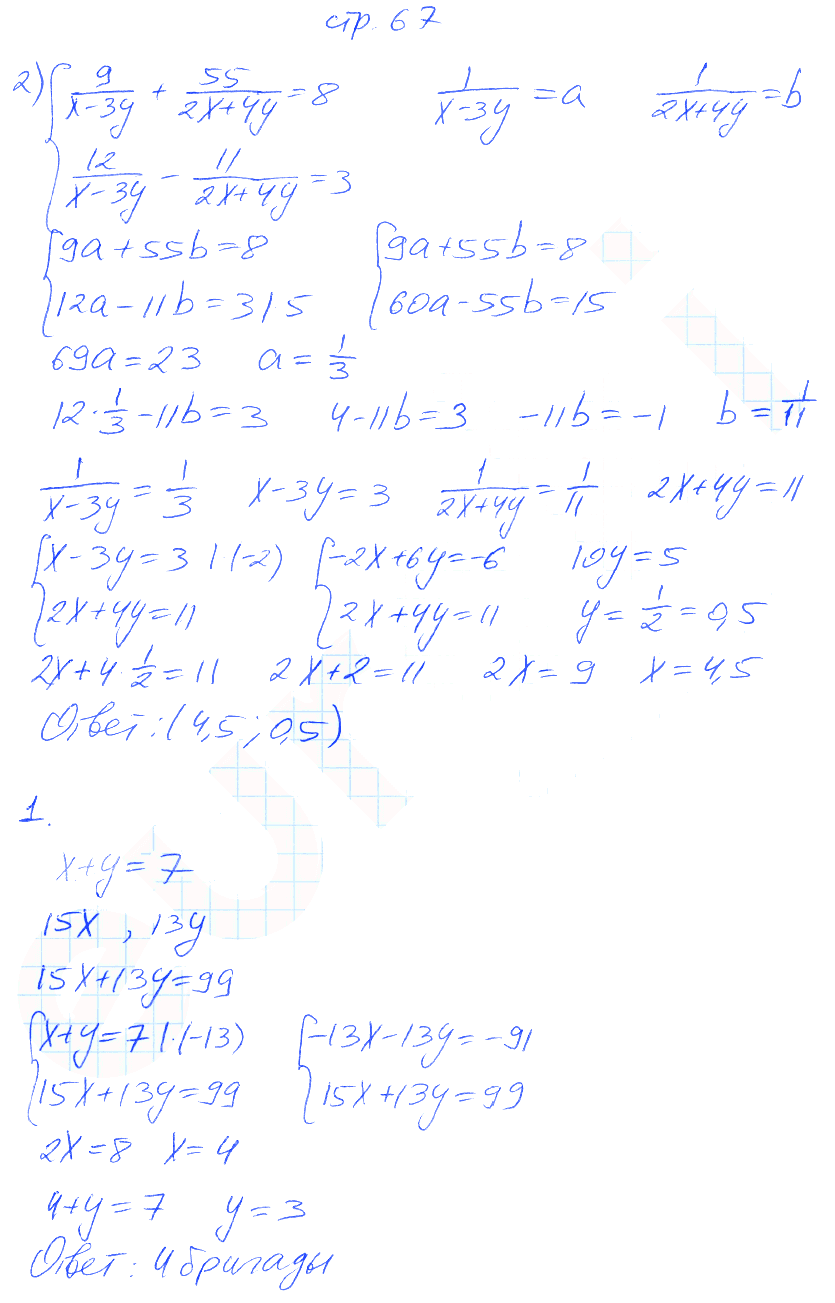 стр. 67
2) { 9/(x-3y) + 55/(2x+4y) = 8   1/(x-3y) = a   1/(2x+4y) = b
{ 12/(x-3y) - 11/(2x+4y) = 3
{ 9a+55b=8   { 9a+55b=8
{ 12a-11b=3|5   { 60a-55b=15
69a=23   a=1/3
12·1/3-11b=3   4-11b=3   -11b=-1   b=1/11
1/(x-3y)=1/3   x-3y=3   1/(2x+4y)=1/11   2x+4y=11
{ x-3y=3 |(-2)   { -2x+6y=-6   10y=5
{ 2x+4y=11   { 2x+4y=11   y=1/2=0,5
2x+4·1/2=11   2x+2=11   2x=9   x=4,5
Ответ: (4,5; 0,5)
1.
x+y=7
15x , 13y
15x+13y=99
{ x+y=7|·(-13)   { -13x-13y=-91
{ 15x+13y=99   { 15x+13y=99
2x=8   x=4
4+y=7   y=3
Ответ: 4 бригады